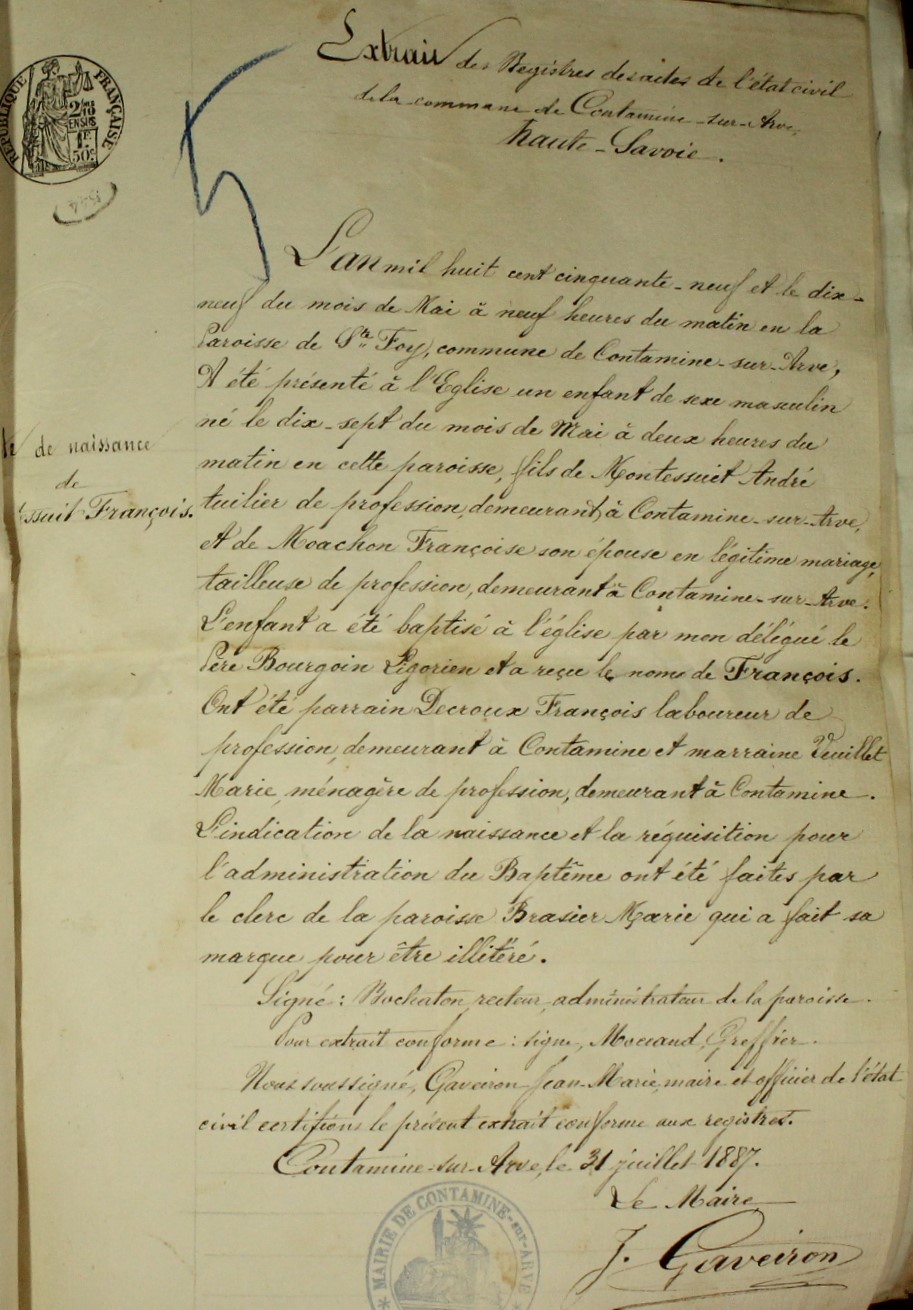 Extrait des Registres des actes de l'état civil
de la commune de Contamine-sur-Arve,
haute-Savoie.
RÉPUBLIQUE FRANÇAISE
2/10
EN SUS
1F
50c
334
5
L'an mil huit cent cinquante-neuf et le dix-
neuf du mois de Mai à neuf heures du matin en la
Paroisse de Ste Foy, commune de Contamine-sur-Arve,
A été présenté à l'Eglise un enfant de sexe masculin
né le dix-sept du mois de Mai à deux heures du
matin en cette paroisse, fils de Montessuit André
tuilier de profession, demeurant à Contamine-sur-Arve,
et de Moachon Françoise son épouse en légitime mariage,
tailleuse de profession, demeurant à Contamine-sur-Arve.
L'enfant a été baptisé à l'église par mon délégué le
Père Bourgoin Ligorien et a reçu le noms de François.
Ont été parrain Decroux François laboureur de
profession, demeurant à Contamine et marraine Vuillet
Marie, ménagère de profession, demeurant à Contamine.
L'indication de la naissance et la réquisition pour
l'administration du Baptême ont été faites par
le clerc de la paroisse Brasier Marie qui a fait sa
marque pour être illitéré.
Signé : Bochaton, recteur, administrateur de la paroisse.
Pour extrait conforme : signé, Greffier.
Nous soussigné, Gaveiron Jean-Marie, maire et officier de l'état
civil certifions le présent extrait conforme aux registres.
Contamine-sur-Arve, le 31 juillet 1887.
Le Maire
J. Gaveiron
MAIRIE DE CONTAMINE-sur-ARVE
de naissance
de
ssuit François.